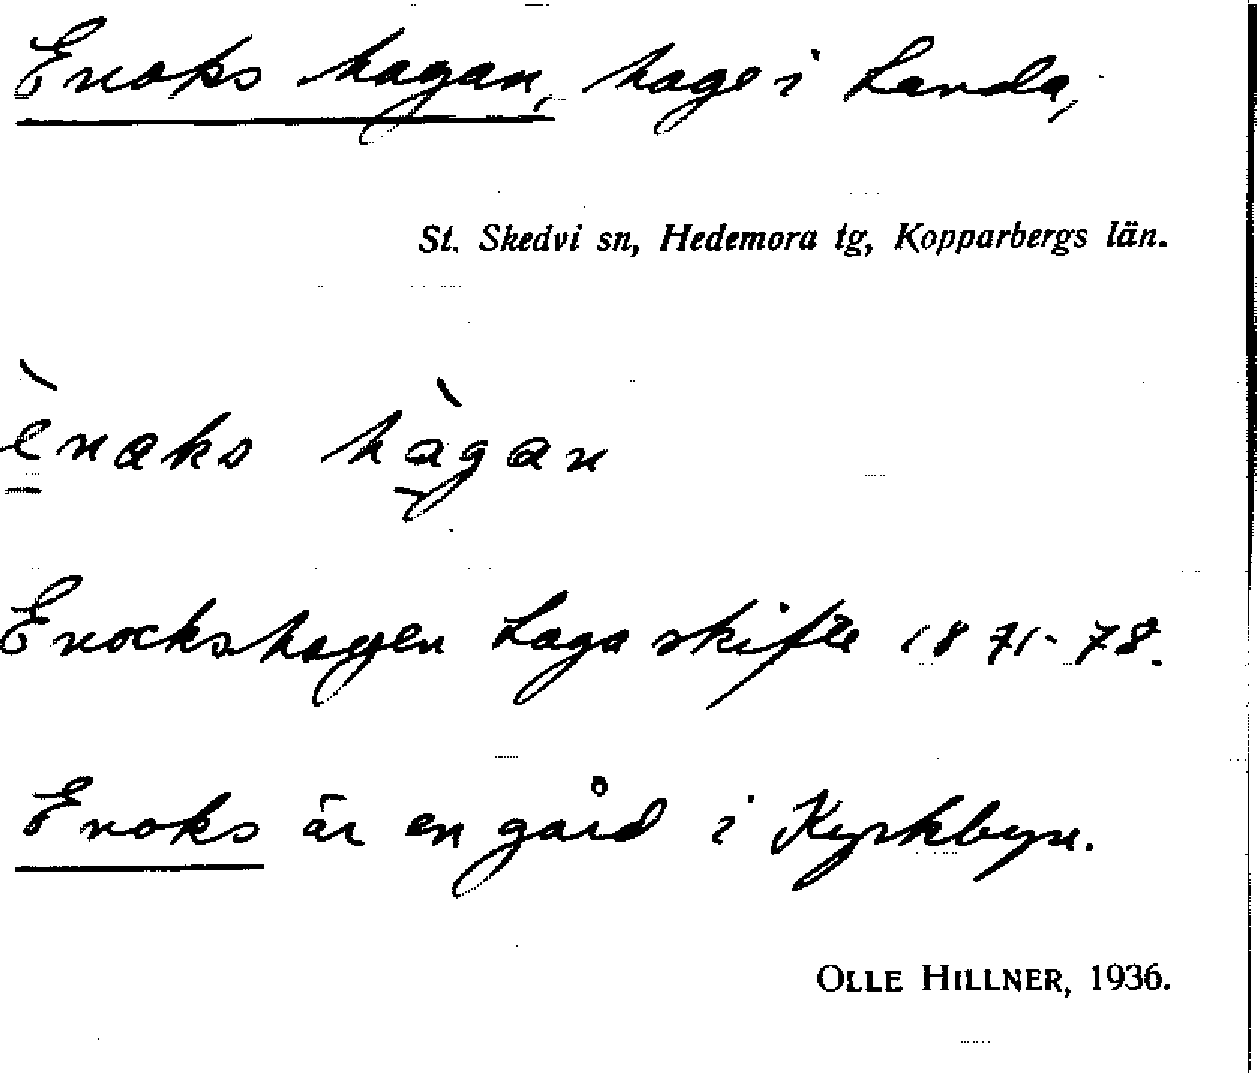 Enoks hagan, hage i Landa,
St. Skedvi sn, Hedemora tg, Kopparbergs län.
ènaks hàgan
Enockshagen Laga skifte 1871-78.
Enoks är en gård i Kyrkbyn.
OLLE HILLNER, 1936.